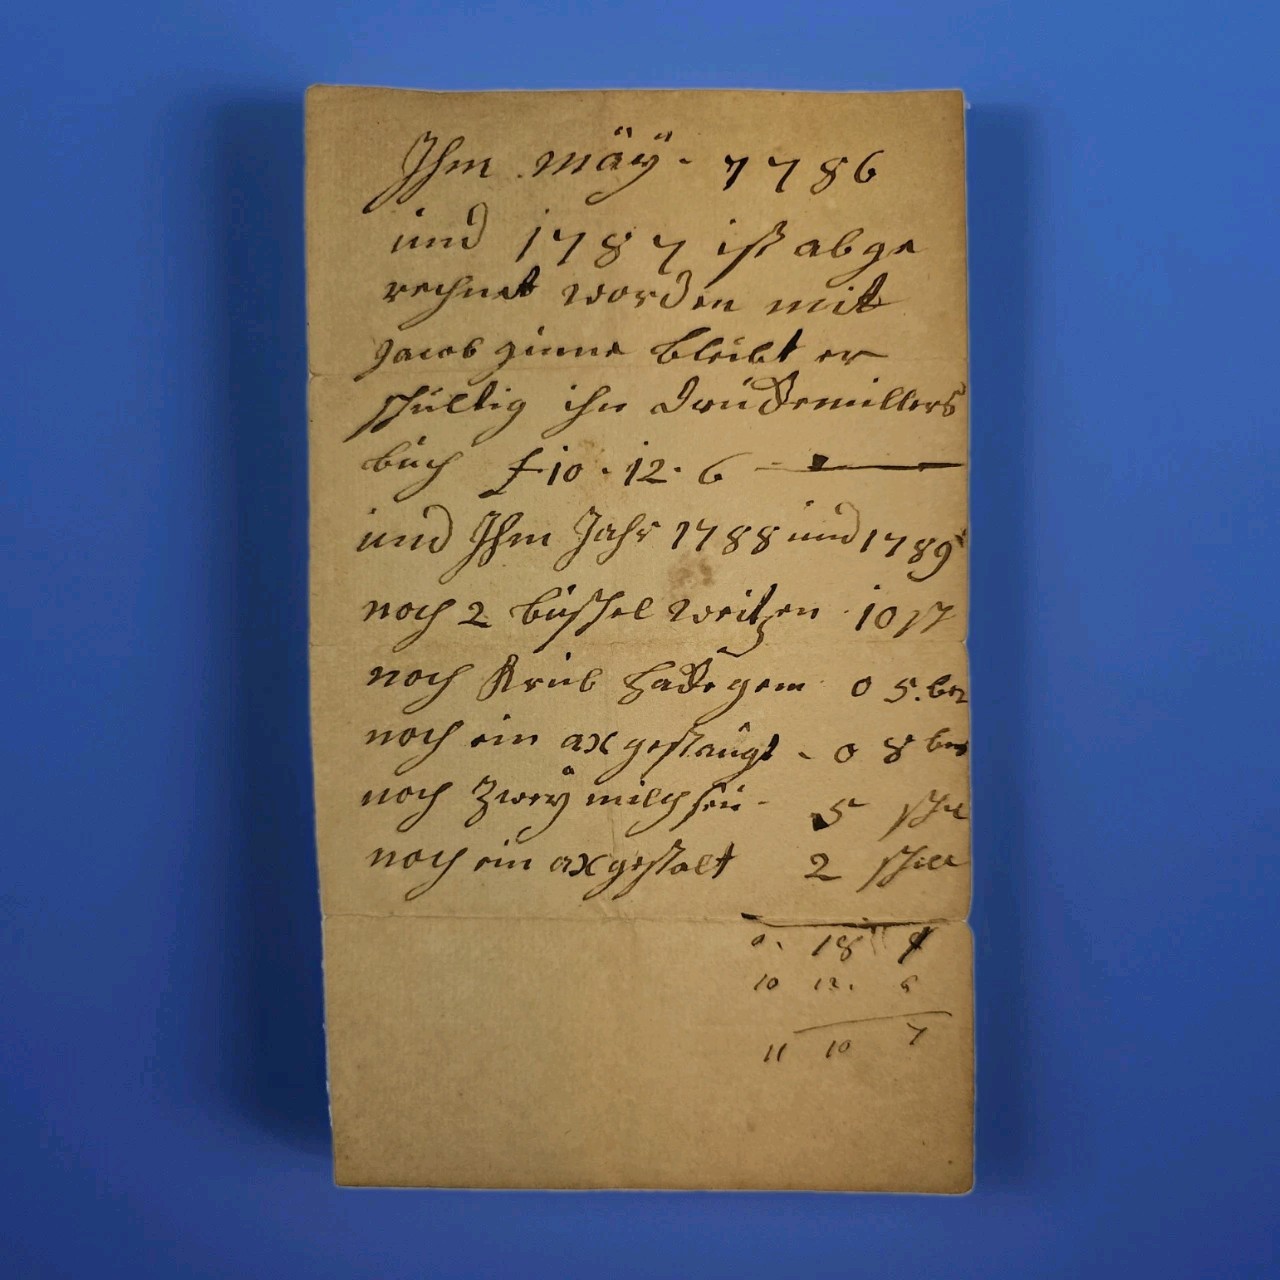 Ihm mäÿ - 1786
und 1787 ist abge
rechnet worden mit
Jacob zinne bleibt er
schultig ihn Druckemillers
buch £ 10 . 12 . 6
und Ihm Jahr 1788 und 1789
noch 2 büschel weitzen 10 sh
noch Krub hacke gem 0 5.
noch ein ax gestaugt - 0 8
noch Zweÿ milch - 5 schil
noch ein ax gestalt 2 schill
0. 18
10 12. 6
11 10 7